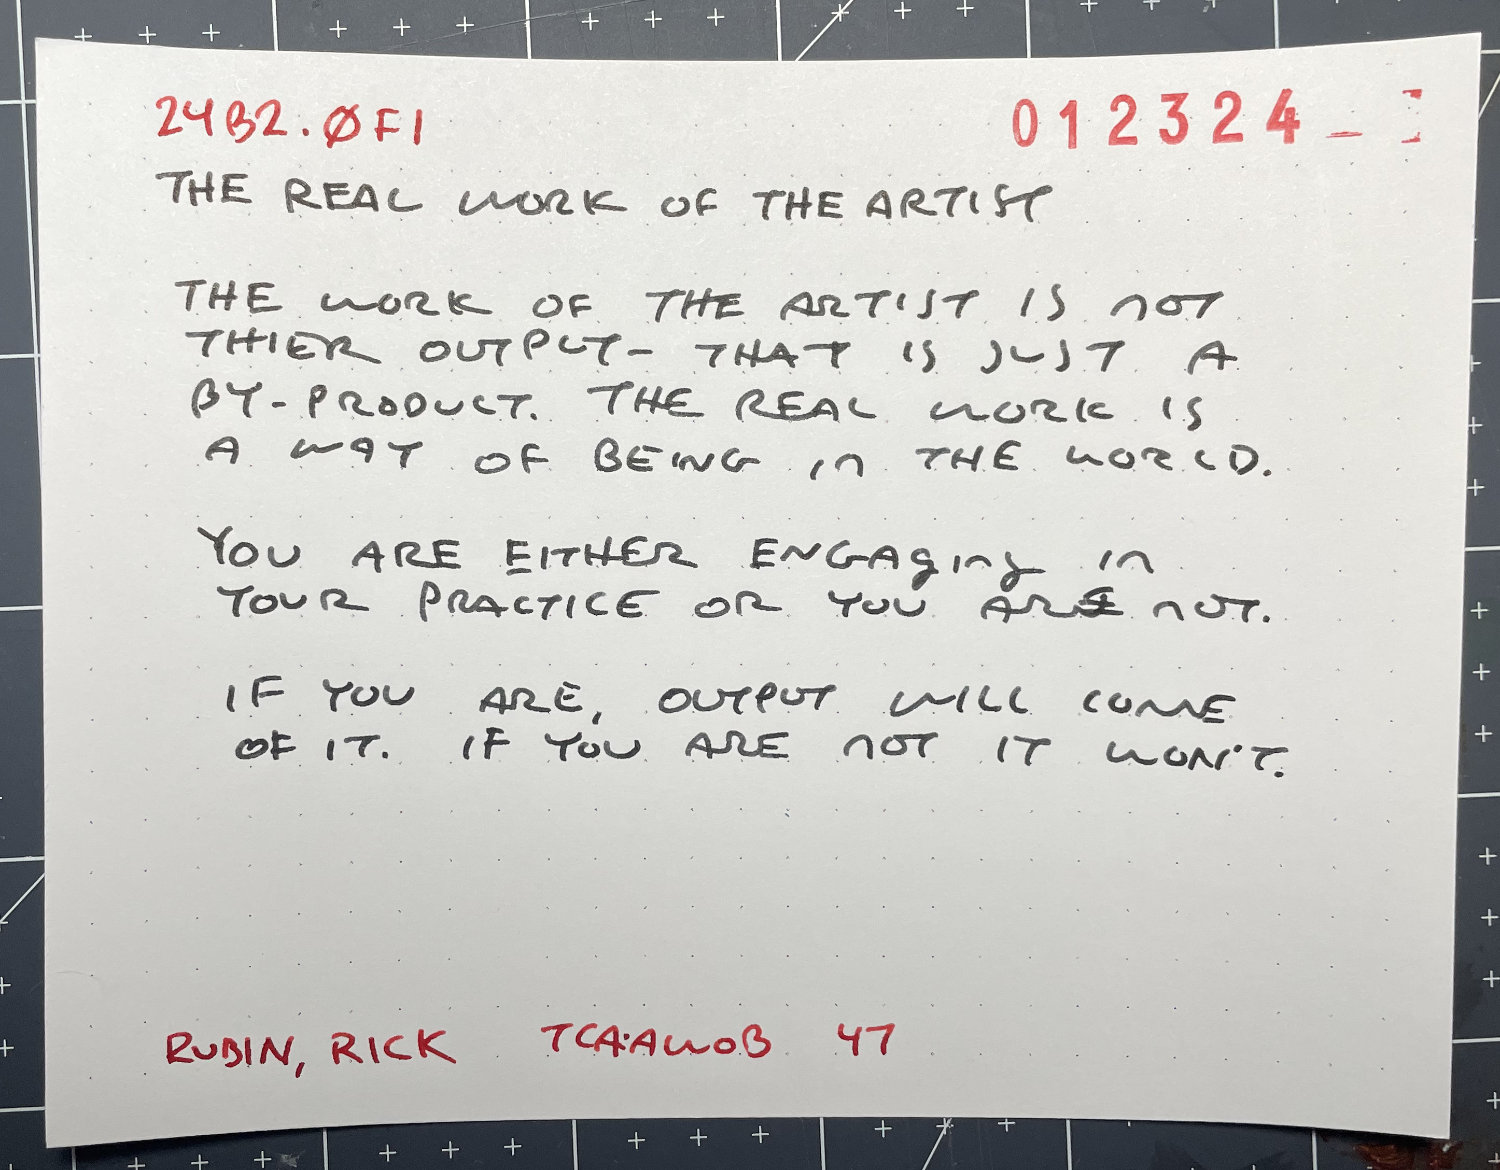 24B2.ØF1
012324
THE REAL WORK OF THE ARTIST
THE WORK OF THE ARTIST IS NOT
THIER OUTPUT- THAT IS JUST A
BY-PRODUCT. THE REAL WORK IS
A WAY OF BEING IN THE WORLD.
YOU ARE EITHER ENGAGING IN
YOUR PRACTICE OR YOU ARE NOT.
IF YOU ARE, OUTPUT WILL COME
OF IT. IF YOU ARE NOT IT WON'T.
RUBIN, RICK TCA:AWOB 47